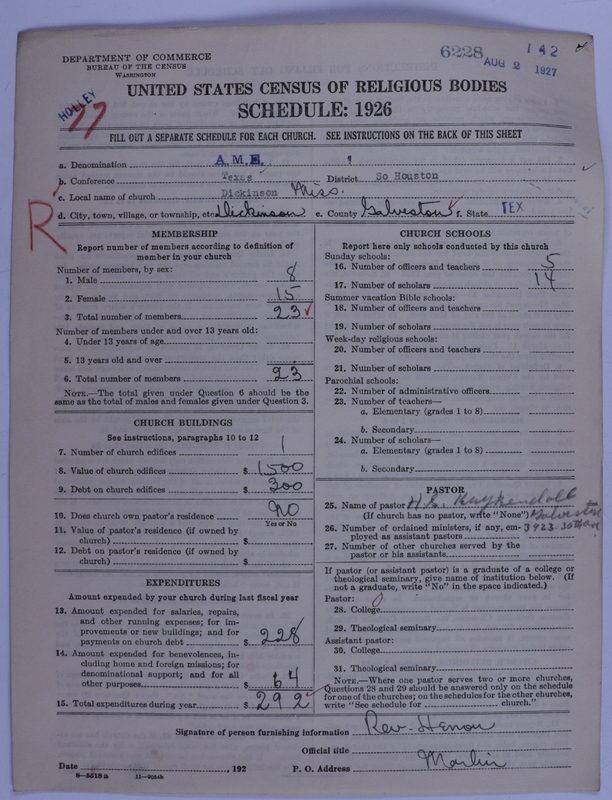 6228 142
AUG 2 1927
DEPARTMENT OF COMMERCE
BUREAU OF THE CENSUS
WASHINGTON
UNITED STATES CENSUS OF RELIGIOUS BODIES
SCHEDULE: 1926
HOLLEY
77
FILL OUT A SEPARATE SCHEDULE FOR EACH CHURCH. SEE INSTRUCTIONS ON THE BACK OF THIS SHEET
a. Denomination A.M.E.
b. Conference Texas District So Houston
c. Local name of church Dickinson Miss.
d. City, town, village, or township, etc. Dickinson e. County Galveston f. State TEX
R
MEMBERSHIP
Report number of members according to definition of
member in your church
Number of members, by sex:
1. Male 8
2. Female 15
3. Total number of members 23
Number of members under and over 13 years old:
4. Under 13 years of age
5. 13 years old and over
6. Total number of members 23
NOTE.—The total given under Question 6 should be the
same as the total of males and females given under Question 3.
CHURCH BUILDINGS
See instructions, paragraphs 10 to 12
7. Number of church edifices 1
8. Value of church edifices $ 1500
9. Debt on church edifices $ 300
10. Does church own pastor's residence No
Yes or No
11. Value of pastor's residence (if owned by
church) $
12. Debt on pastor's residence (if owned by
church) $
EXPENDITURES
Amount expended by your church during last fiscal year
13. Amount expended for salaries, repairs,
and other running expenses; for im-
provements or new buildings; and for
payments on church debt $ 228
14. Amount expended for benevolences, in-
cluding home and foreign missions; for
denominational support; and for all
other purposes $ 64
15. Total expenditures during year $ 292
CHURCH SCHOOLS
Report here only schools conducted by this church
Sunday schools:
16. Number of officers and teachers 5
17. Number of scholars 14
Summer vacation Bible schools:
18. Number of officers and teachers
19. Number of scholars
Week-day religious schools:
20. Number of officers and teachers
21. Number of scholars
Parochial schools:
22. Number of administrative officers
23. Number of teachers—
a. Elementary (grades 1 to 8)
b. Secondary
24. Number of scholars—
a. Elementary (grades 1 to 8)
b. Secondary
PASTOR
25. Name of pastor H. Kuykendall
(If church has no pastor, write "None") Galveston
26. Number of ordained ministers, if any, em- 3923
ployed as assistant pastors
27. Number of other churches served by the
pastor or his assistants
If pastor (or assistant pastor) is a graduate of a college or
theological seminary, give name of institution below. (If
not a graduate, write "No" in the space indicated.)
Pastor:
28. College 0
29. Theological seminary
Assistant pastor:
30. College
31. Theological seminary
NOTE.—Where one pastor serves two or more churches,
Questions 28 and 29 should be answered only on the schedule
for one of the churches; on the schedules for the other churches,
write "See schedule for church."
Signature of person furnishing information Rev.
Official title
Date , 192 P. O. Address Marlin
8—5518a 11—9024b